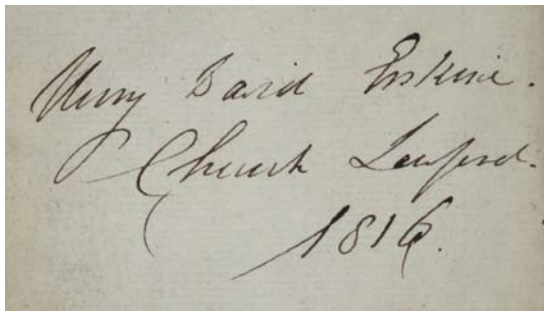 Henry David Erskine.
Church Lawford.
1816.